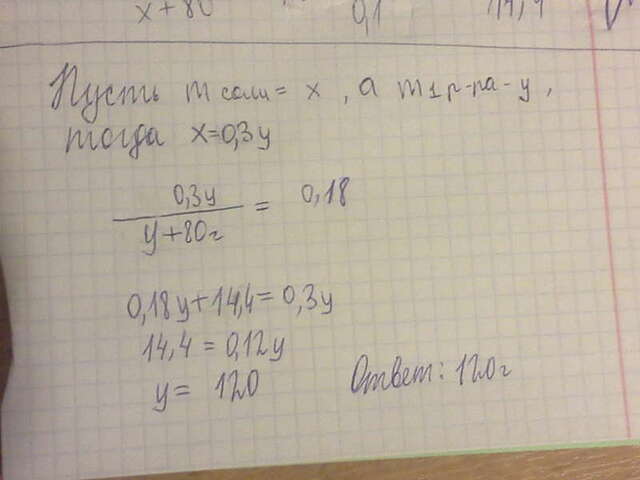 x + 80 0,1 14,4
Пусть m соли = x , а m 1 р-ра - y ,
тогда x=0,3y
0,3y
y+80г
= 0,18
0,18y+14,4=0,3y
14,4 = 0,12y
y= 120
Ответ: 120г